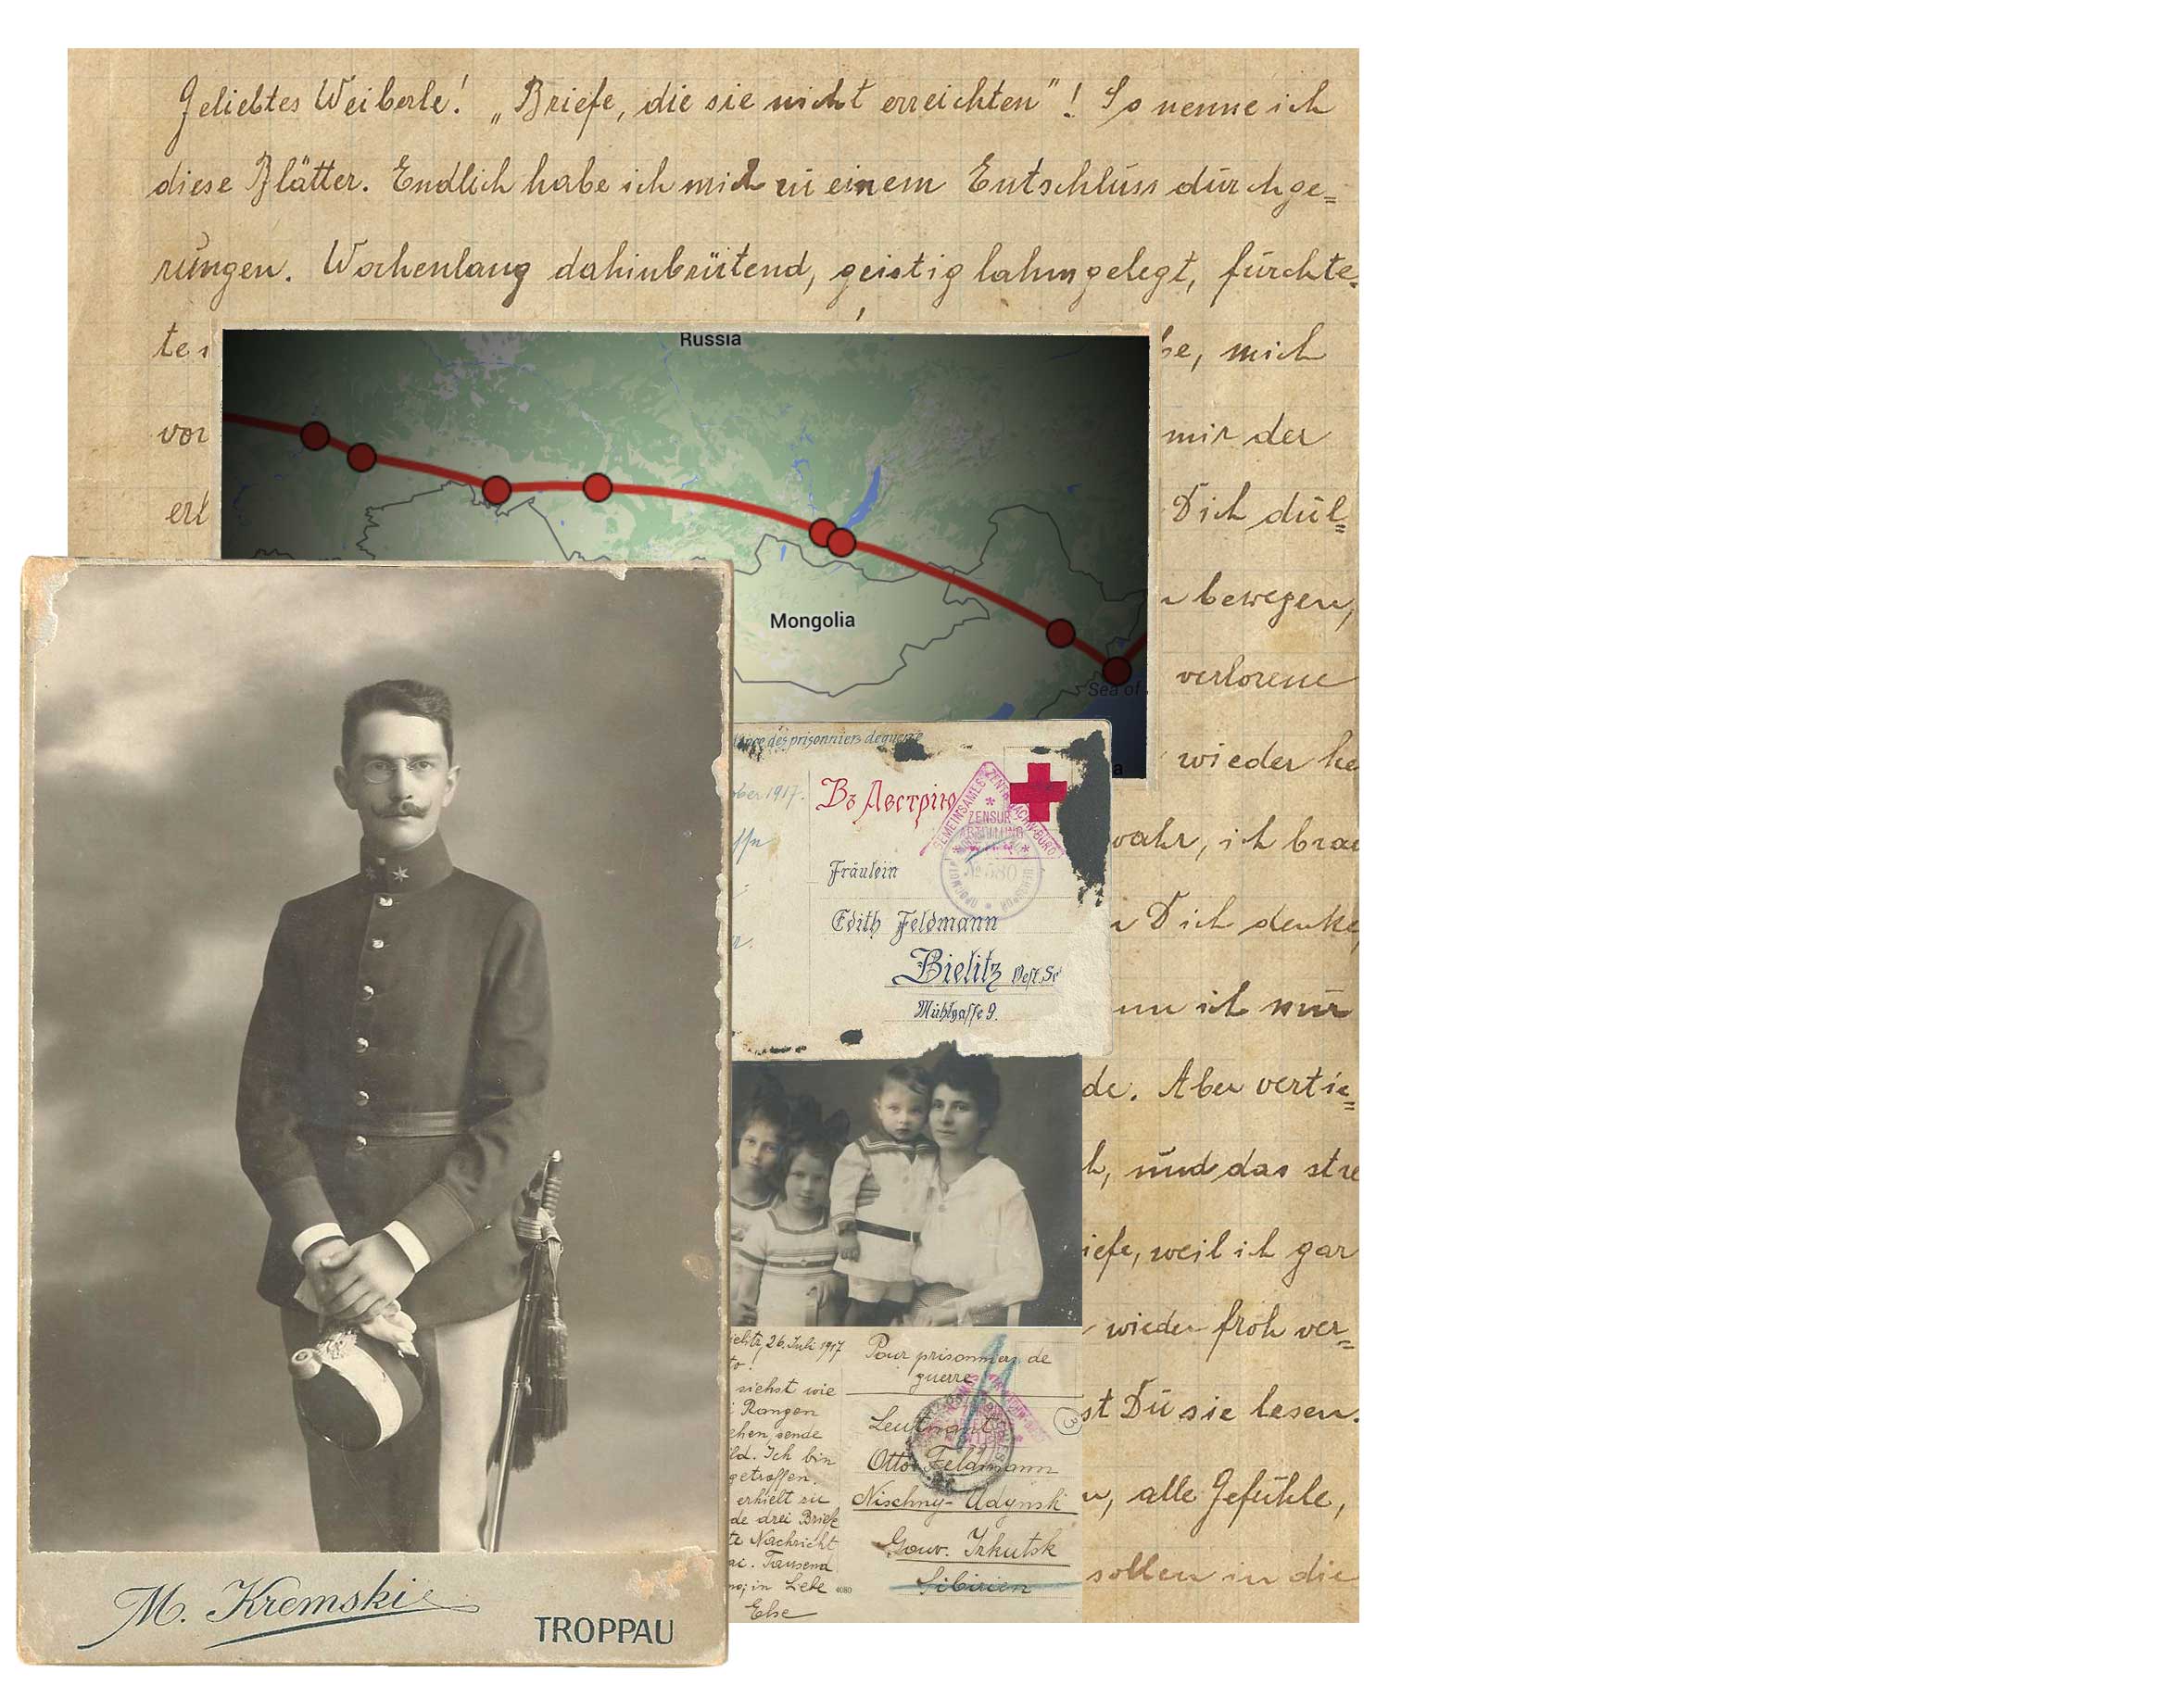 Geliebtes Weiberle! „Briefe, die sie nicht erreichten"! So nenne ich
diese Blätter. Endlich habe ich mich zu einem Entschluss durchge=
rungen. Wochenlang dahinbrütend, geistig lahmgelegt, fürchte=
te
mich
vor
mir der
Dich dül=
bewegen,
verlorene
wieder he
wahr, ich brau
Dich denke,
ich nur
de. Aber vertie=
und das stre
iefe, weil ich gar
wieder froh ver=
st Du sie lesen.
alle Gefühle,
sollen in die
Russia
Mongolia
Sea of
a
M. Kremski
TROPPAU
dance des prisonniers de guerre
ober 1917.
Въ Австрію
GEMEINSAMES ZENTR. NACHW. BÜRO
ZENSUR
ABTEILUNG
Fräulein
Edith Feldmann
Bielitz Oest. Sc
Mühlgasse 9.
ielitz, 26. Juli 1917
siehst wie
Rangen
ehen, sende
ld. Ich bin
getroffen.
erhielt sie
de drei Briefe
te Nachricht
ai. Tausend
in Liebe
Else
4080
Pour prisonniers de
guerre
3
Leutnant
Otto Feldmann
Nischny-Udynsk
Gouv. Irkutsk
Sibirien